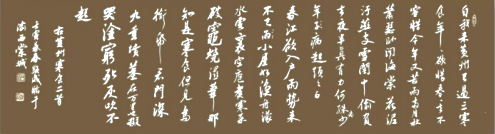 自我来黄州已过三寒
食年年欲惜春春去不
容惜今年又苦雨两月秋
萧瑟卧闻海棠花泥
污燕支雪闇中偷负
去夜半真有力何殊少
年子病起头已白
春江欲入户雨势来
不已雨小屋如渔舟濛濛
水云里空庖煮寒菜
破灶烧湿苇那
知是寒食但见乌
衔纸君门深
九重坟墓在万里也拟
哭涂穷死灰吹不
起